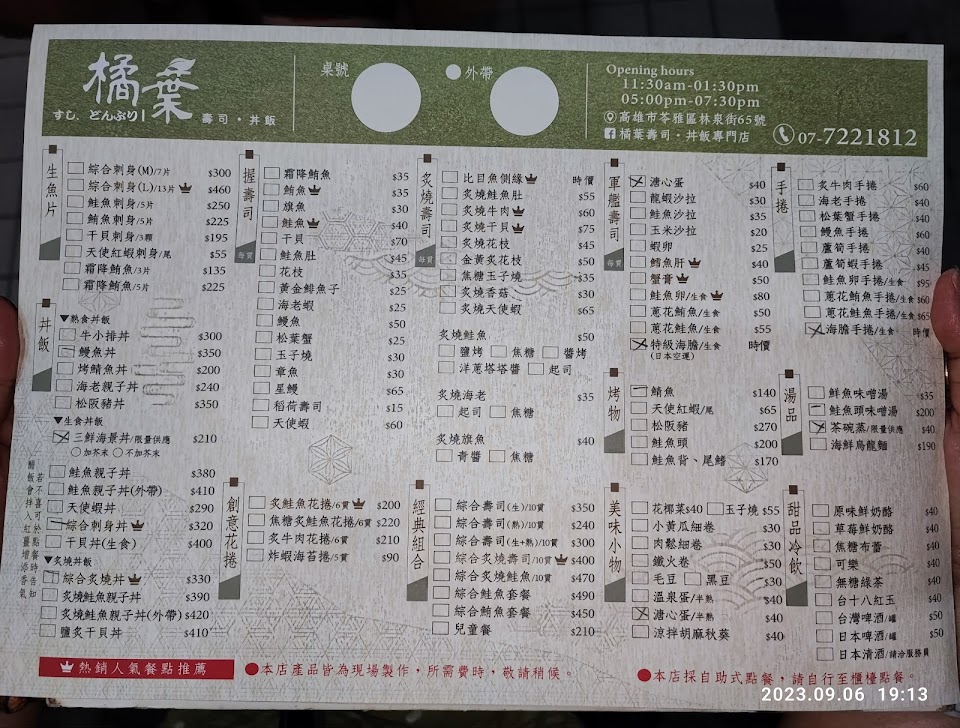 橘葉
すし、どんぶり
壽司・丼飯
桌號
外帶
Opening hours
11:30am-01:30pm
05:00pm-07:30pm
高雄市苓雅區林泉街65號
橘葉壽司・丼飯專門店
07-7221812
生魚片
綜合刺身(M)/7片 $300
綜合刺身(L)/13片 $460
鮭魚刺身/5片 $250
鮪魚刺身/5片 $225
干貝刺身/3顆 $195
天使紅蝦刺身/尾 $55
霜降鮪魚/3片 $135
霜降鮪魚/5片 $225
丼飯
▼熟食丼飯
牛小排丼 $300
鰻魚丼 $350
烤鯖魚丼 $200
海老親子丼 $240
松阪豬丼 $350
▼生食丼飯
三鮮海景丼/限量供應 $210
加芥末 不加芥末
鮭魚親子丼 $380
鮭魚親子丼(外帶) $410
天使蝦丼 $290
綜合刺身丼 $320
干貝丼(生食) $400
▼炙燒丼飯
綜合炙燒丼 $330
炙燒鮭魚親子丼 $390
炙燒鮭魚親子丼(外帶) $420
鹽炙干貝丼 $410
握壽司
每貫
霜降鮪魚 $35
鮪魚 $35
旗魚 $30
鮭魚 $40
干貝 $70
鮭魚肚 $45
花枝 $35
黃金鯡魚子 $25
海老蝦 $25
鰻魚 $50
松葉蟹 $25
玉子燒 $30
章魚 $30
星鰻 $65
稻荷壽司 $15
天使蝦 $60
創意花捲
炙鮭魚花捲/6貫 $200
焦糖炙鮭魚花捲/6貫 $220
炙牛肉花捲/6貫 $210
炸蝦海苔捲/5貫 $90
炙燒壽司
每貫
比目魚側緣 時價
炙燒鮭魚肚 $55
炙燒牛肉 $60
炙燒干貝 $75
炙燒花枝 $45
金黃炙花枝 $50
焦糖玉子燒 $35
炙燒香菇 $30
炙燒天使蝦 $65
炙燒鮭魚 $50
鹽烤 焦糖 醬烤
洋蔥塔塔醬 起司
炙燒海老 $35
起司 焦糖
炙燒旗魚 $40
青醬 焦糖
經典組合
綜合壽司(生)/10貫 $350
綜合壽司(熟)/10貫 $240
綜合壽司(生+熟)/10貫 $300
綜合炙燒壽司/10貫 $400
綜合炙燒鮭魚/10貫 $470
綜合鮭魚套餐 $490
綜合鮪魚套餐 $450
兒童餐 $210
軍艦壽司
每貫
溏心蛋 $40
龍蝦沙拉 $30
鮭魚沙拉 $35
玉米沙拉 $20
蝦卵 $25
鱈魚肝 $40
蟹膏 $50
鮭魚卵/生食 $80
蔥花鮪魚/生食 $50
蔥花鮭魚/生食 $55
特級海膽/生食 時價
(日本空運)
烤物
鯖魚 $140
天使紅蝦/尾 $65
松阪豬 $270
鮭魚頭 $200
鮭魚背、尾鰭 $170
美味小物
花椰菜$40 玉子燒 $55
小黃瓜細卷 $30
肉鬆細卷 $30
鐵火卷 $50
毛豆 黑豆 $30
溫泉蛋/半熟 $40
溏心蛋/半熟 $40
涼拌胡麻秋葵 $40
手捲
炙牛肉手捲 $60
海老手捲 $40
松葉蟹手捲 $40
鰻魚手捲 $60
蘆筍手捲 $40
蘆筍蝦手捲 $45
鮭魚卵手捲/生食 $95
蔥花鮪魚手捲/生食 $60
蔥花鮭魚手捲/生食 $65
海膽手捲/生食 時價
湯品
鮮魚味噌湯 $35
鮭魚頭味噌湯 $200
茶碗蒸/限量供應 $40
海鮮烏龍麵 $190
甜品冷飲
原味鮮奶酪 $40
草莓鮮奶酪 $40
焦糖布蕾 $40
可樂 $40
無糖綠茶 $40
台十八紅玉 $40
台灣啤酒/罐 $50
日本啤酒/罐 $50
日本清酒/請洽服務員
熱銷人氣餐點推薦
●本店產品皆為現場製作，所需費時，敬請稍候。
●本店採自助式點餐，請自行至櫃檯點餐。
2023.09.06 19:13